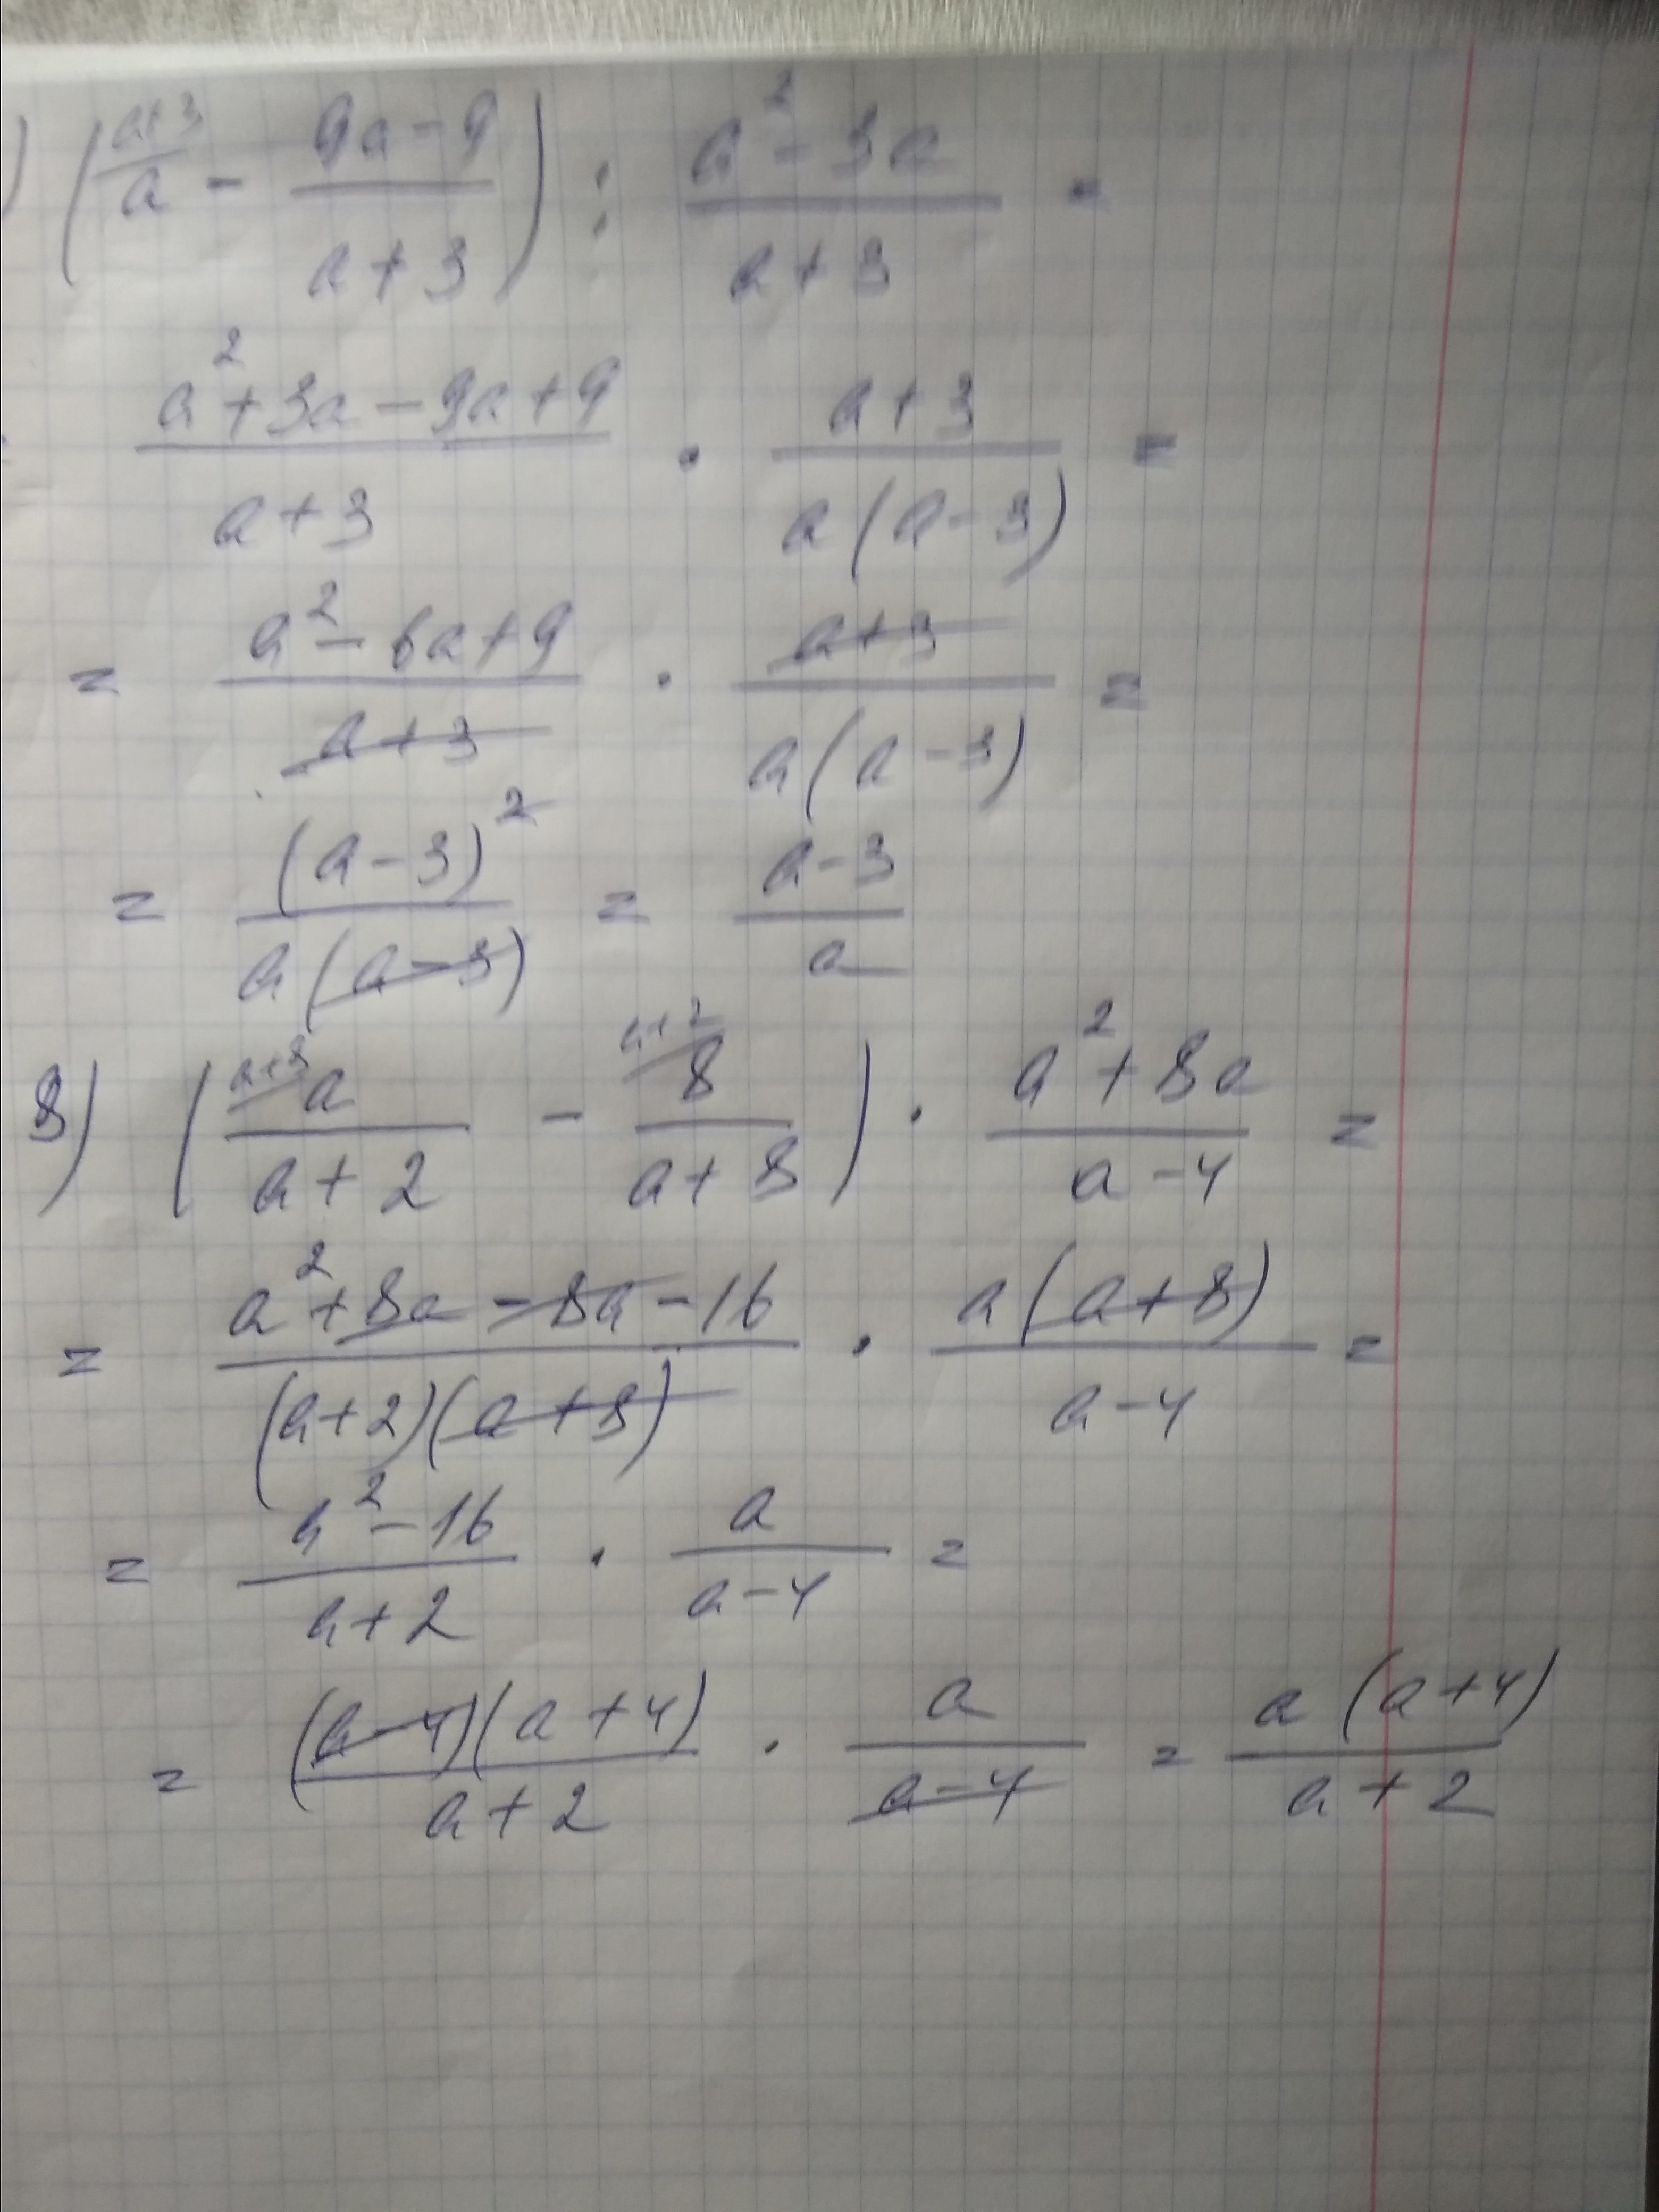 ) (a+3/a - 9a-9/a+3) : a²-3a/a+3 =
a²+3a-9a+9/a+3 · a+3/a(a-3) =
= a²-6a+9/a+3 · a+3/a(a-3) =
= (a-3)²/a(a-3) = a-3/a
8) (a+8 a/a+2 - a+2 8/a+8) · a²+8a/a-4 =
= a²+8a-8a-16/(a+2)(a+8) · a(a+8)/a-4 =
= a²-16/a+2 · a/a-4 =
= (a-4)(a+4)/a+2 · a/a-4 = a(a+4)/a+2